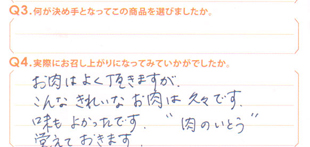 Q3.何が決め手となってこの商品を選びましたか。
Q4.実際にお召し上がりになってみていかがでしたか。
お肉はよく頂きますが、
こんなきれいなお肉は久々です。
味もよかったです。“肉のいとう”
覚えておきます